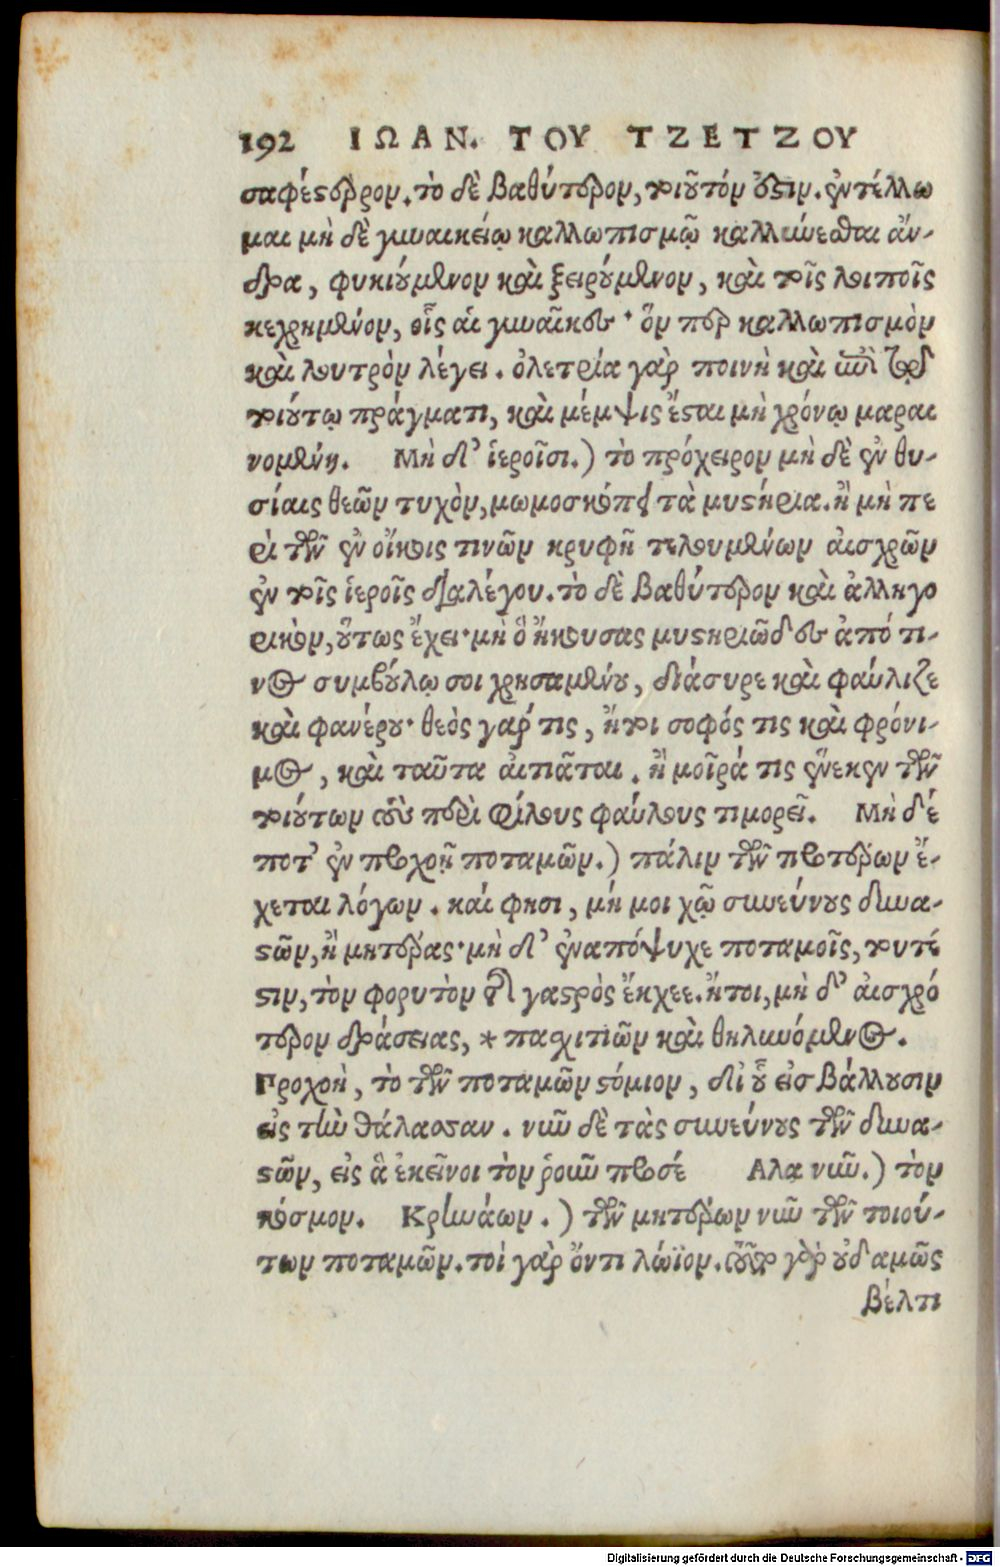 192 ΙΩΑΝ. ΤΟΥ ΤΖΕΤΖΟΥ
σαφέςερρον. τὸ δὲ βαθύτερον, τοιοῦτόν ὅξιν. ἐντέλλω
μαι μὴ δὲ γυναικείῳ καλλωπισμῷ καλλιύνεσθαι ἄν-
δρα, φυκιούμενον καὶ ξειρούμενον, καὶ τοῖς λοιποῖς
κεχρημένον, οἷς αἱ γυναῖκες· ὅν περ καλλωπισμὸν
καὶ λουτρὸν λέγει. ὀλετρία γὰρ ποινὴ καὶ ἐπὶ τῷδε
τοιούτῳ πράγματι, καὶ μέμψις ἔσται μὴ χρόνῳ μαραι
νομένη. Μὴ δ’ ἱεροῖσι.) τὸ πρόχειρον μὴ δὲ ἐν θυ-
σίαις θεῶν τυχὸν, μωμοσκόπει τὰ μυστήρια. ἢ μὴ πε
ρὶ τῶν ἐν οἴκοις τινῶν κρυφῇ τελουμένων αἰσχρῶν
ἐν τοῖς ἱεροῖς διαλέγου. τὸ δὲ βαθύτερον καὶ ἀλληγο
ρικὸν, οὕτως ἔχει· μὴ ὃ ἤκουσας μυστηριῶδες ἀπό τι-
νος συμβούλῳ σοι χρησαμένου, διάσυρε καὶ φαύλιζε
καὶ φανέρου· θεὸς γαρ τις, ἤτοι σοφός τις καὶ φρόνι-
μος, καὶ ταῦτα αἰτιᾶται. ἢ μοῖρά τις ἕνεκεν τῶν
τοιούτων τοὺς περὶ φίλους φαύλους τιμορεῖ. Μὴ δέ
ποτ’ ἐν προχοῇ ποταμῶν.) πάλιν τῶν προτέρων ἔ-
χεται λόγων. καί φησι, μή μοι χῷ συνεύνους δυνα-
στῶν, ἢ μητέρας· μὴ δ’ ἐναπόψυχε ποταμοῖς, τουτέ
στιν, τὸν φορυτὸν τῆς γαστρὸς ἔκχεε. ἤτοι, μὴ δ’ αἰσχρό
τερον δράσειας, * παχιτιῶν καὶ θηλυνόμενος.
Προχοὴ, τὸ τῶν ποταμῶν στόμιον, δι’ οὗ εἰσβάλλουσιν
εἰς τὴν θάλασσαν. νῦν δὲ τὰς συνεύνους τῶν δυνα-
στῶν, εἰς ἃ ἐκεῖνοι τὸν ῥοῦν προσέ Αλα νῦν.) τὸν
κόσμον. Κρηνάων.) τῶν μητέρων νῦν τῶν τοιού-
των ποταμῶν. τοὶ γὰρ ὄντι λώϊον. γὰρ οὐδαμῶς
βέλτι
Digitalisierung gefördert durch die Deutsche Forschungsgemeinschaft - DFG